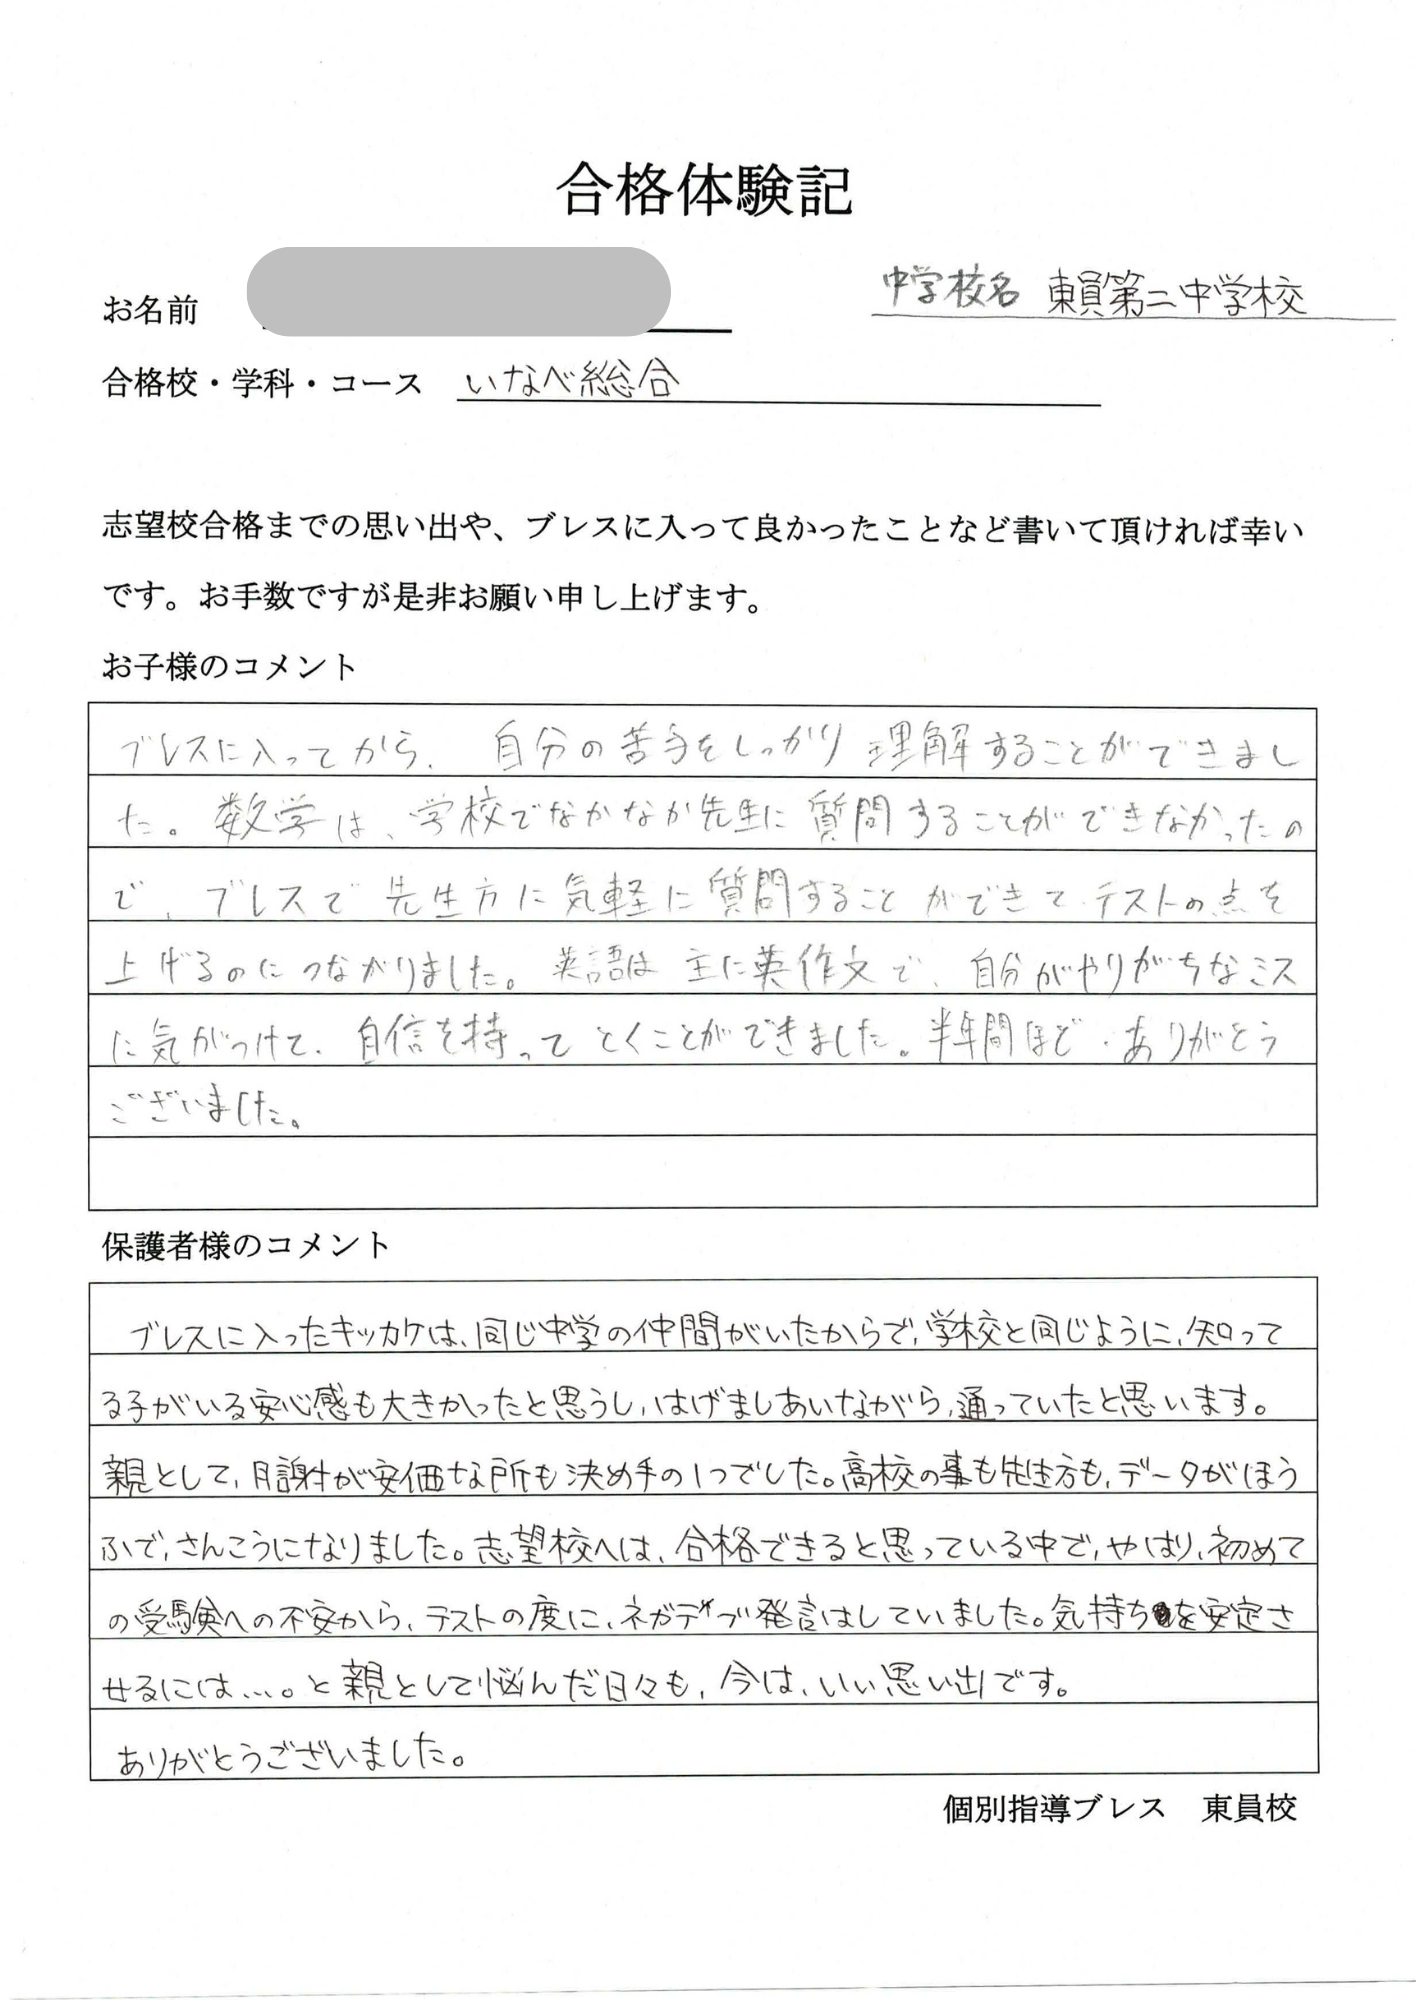 合格体験記
お名前
中学校名 東員第二中学校
合格校・学科・コース いなべ総合
志望校合格までの思い出や、ブレスに入って良かったことなど書いて頂ければ幸い
です。お手数ですが是非お願い申し上げます。
お子様のコメント
ブレスに入ってから、自分の苦手をしっかり理解することができまし
た。数学は、学校でなかなか先生に質問することができなかったの
で、ブレスで先生方に気軽に質問することができて、テストの点を
上げるのにつながりました。英語は主に英作文で、自分がやりがちなミス
に気がつけて、自信を持ってとくことができました。半年間ほど、ありがとう
ございました。
保護者様のコメント
ブレスに入ったキッカケは、同じ中学の仲間がいたからで、学校と同じように、知って
る子がいる安心感も大きかったと思うし、はげましあいながら、通っていたと思います。
親として、月謝が安価な所も決め手の1つでした。高校の事も先生方も、データがほう
ふで、さんこうになりました。志望校へは、合格できると思っている中で、やはり、初めて
の受験への不安から、テストの度に、ネガティブ発言はしていました。気持ちを安定さ
せるには…。と親として悩んだ日々も、今は、いい思い出です。
ありがとうございました。
個別指導ブレス 東員校